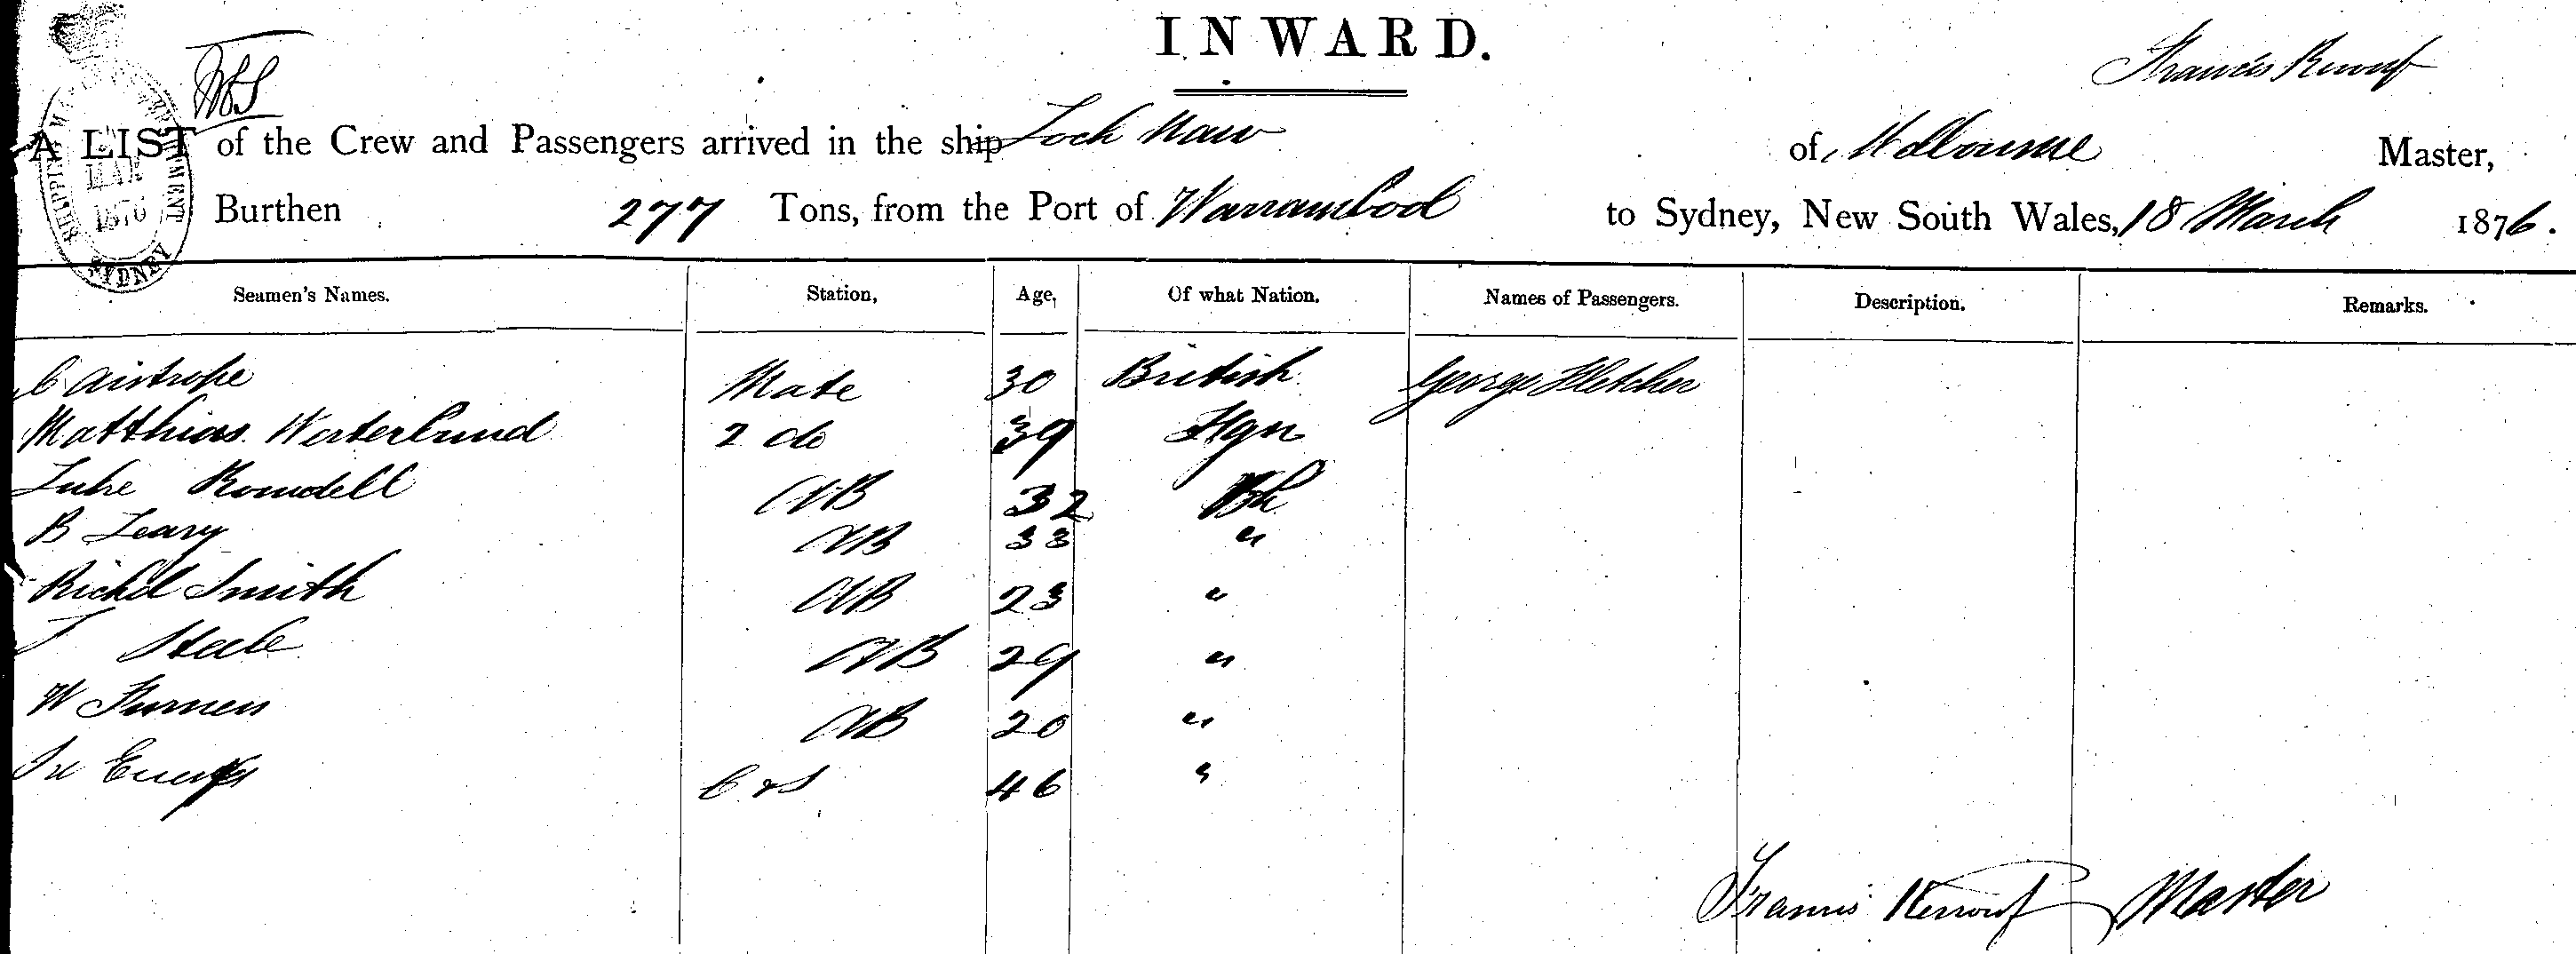 INWARD.
Francis Renouf
A LIST of the Crew and Passengers arrived in the ship Loch Naw of Melbourne Master,
Burthen 277 Tons, from the Port of Warrambool to Sydney, New South Wales, 18 March 1876.
SHIPPING MASTER'S DEPARTMENT MAR 1876 SYDNEY
Seamen's Names. Station, Age, Of what Nation. Names of Passengers. Description. Remarks.
C Airstrope Mate 30 British George Fletcher
Matthias Westerlund 2 do 39 Fgn
Luke Romdell AB 32 Bh
B Leary AB 33 "
Richd Smith AB 23 "
J Steele AB 29 "
W Furness AB 20 "
C & S 46 "
Francis Renouf Master